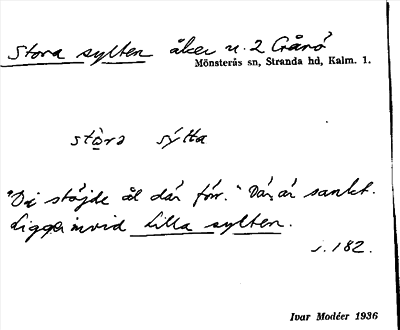 Stora sylten åker n. 2 Crånö
Mönsterås sn, Stranda hd, Kalm. 1.
stòrɘ sýlta
"Di stöjde ål där förr." Där är sankt.
Ligger invid Lilla sylten.
s. 182.
Ivar Modéer 1936